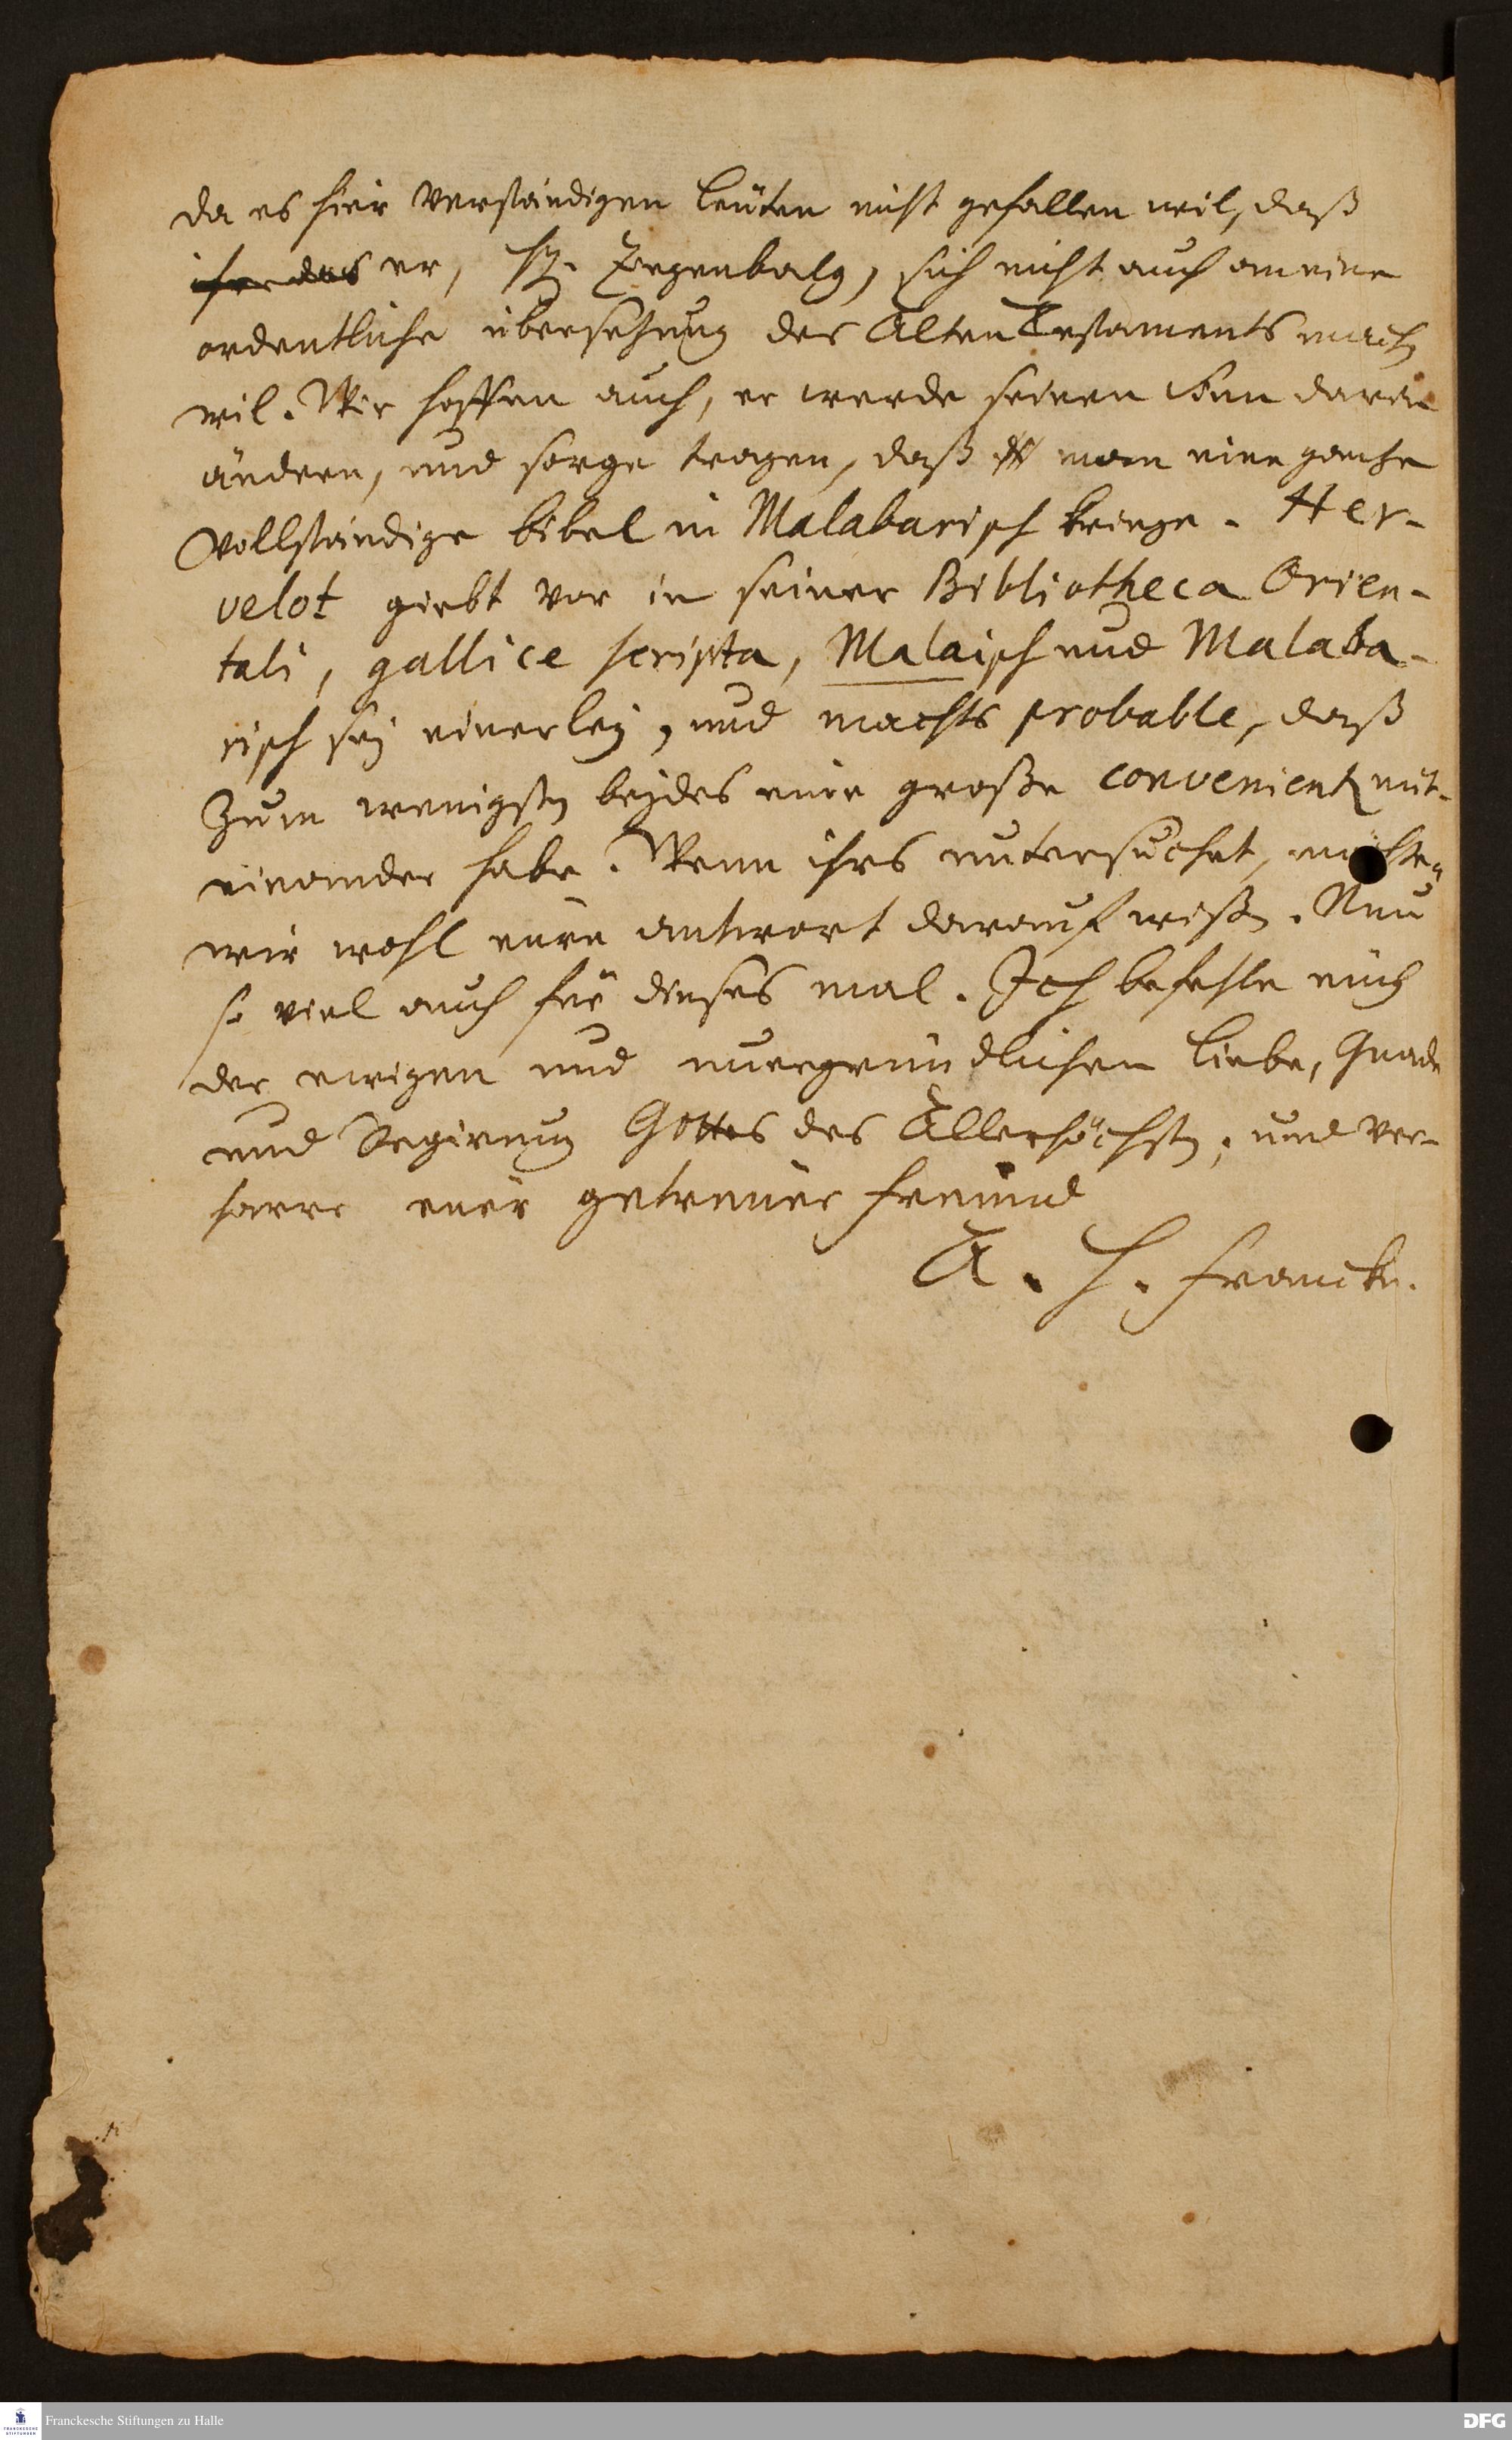 da es hier verständigen leüten nicht gefallen wil, daß
er, H. Ziegenbalg, sich nicht auch an eine
ordentliche übersetzung des Alten Testaments machen
wil. Wir hoffen auch, er werde seinen Sinn darin
ändern, und sorge tragen, daß man eine gantze
vollständige bibel in Malabarisch kriege. Her-
velot giebt vor in seiner Bibliotheca Orien-
tali, gallice scripta, Malaisch und Malaba-
risch sey einerley, und machts probable, daß
zum wenigsten beydes eine große convenientz mit-
einander habe. Wenn ihrs untersuchet, möchten
wir wohl eure antwort darauf wißen. Nun
so viel auch für dieses mal. Ich befehle euch
der ewigen und unergründlichen liebe, Gnade
und Regierung Gottes des Allerhöchsten, und ver-
harre euer getreuer freund
A. H. Francke.
Franckesche Stiftungen zu Halle
DFG